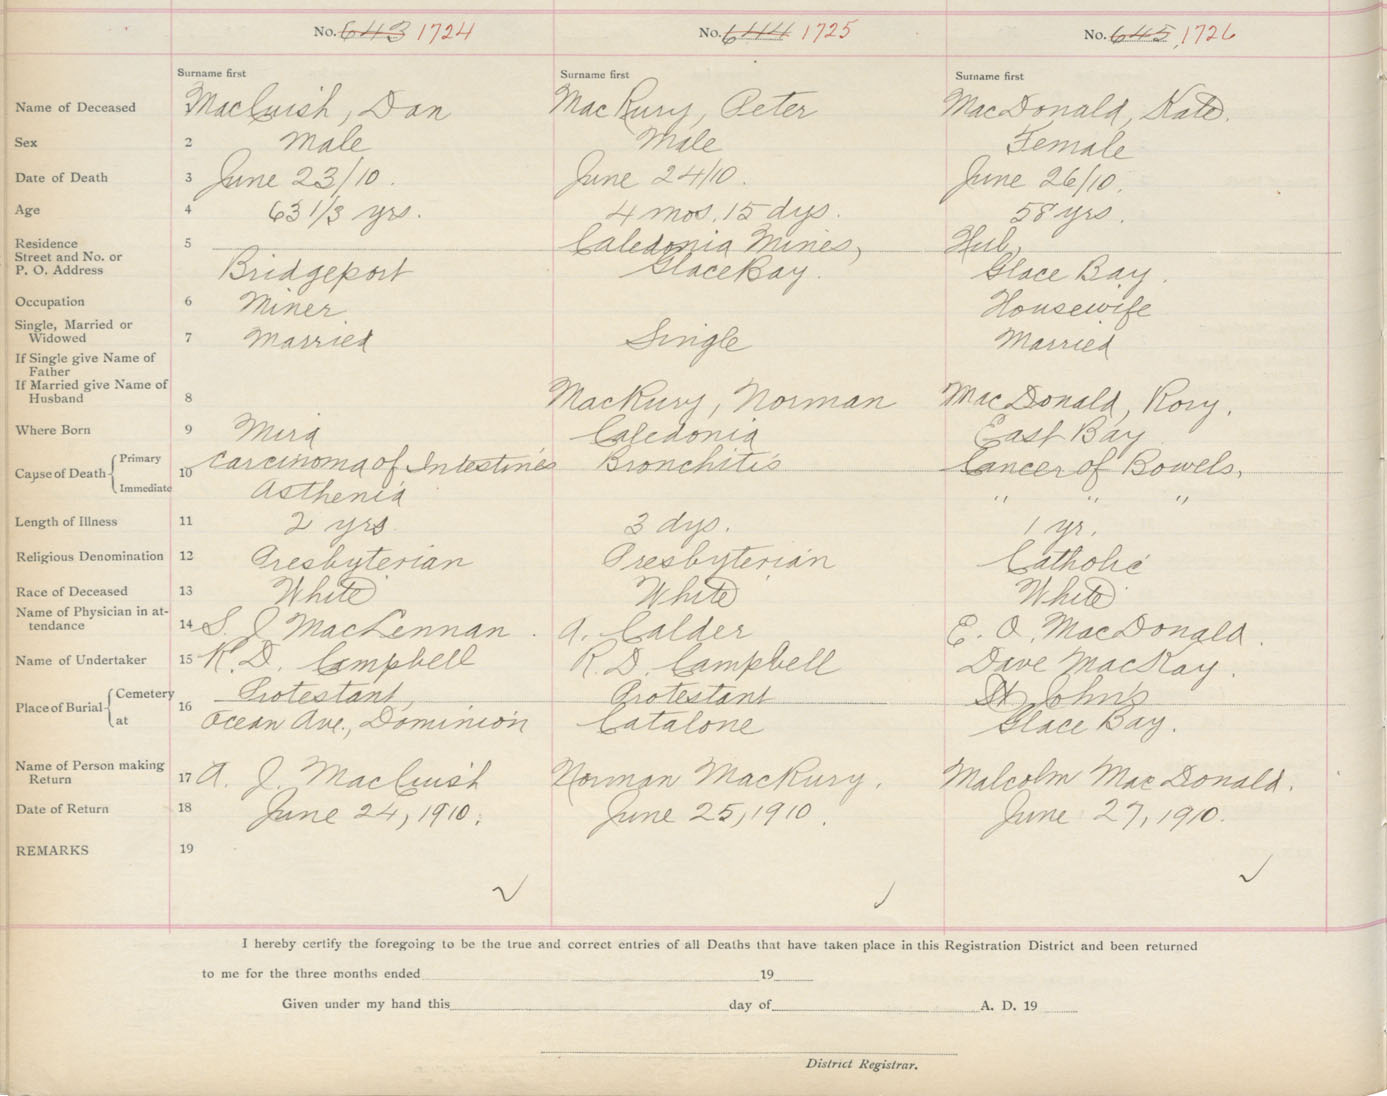 No. 643 1724 No. 644 1725 No. 645 1726
Surname first Surname first Surname first
Name of Deceased 1 MacCuish, Dan MacRury, Peter MacDonald, Kate.
Sex 2 Male Male Female
Date of Death 3 June 23/10. June 24/10. June 26/10.
Age 4 63 1/3 yrs. 4 mos. 15 dys. 58 yrs.
Residence 5 Caledonia Mines, Hub,
Street and No. or
P. O. Address Bridgeport Glace Bay. Glace Bay.
Occupation 6 Miner Housewife
Single, Married or
Widowed 7 Married Single Married
If Single give Name of
Father
If Married give Name of
Husband 8 MacRury, Norman MacDonald, Rory.
Where Born 9 Mira Caledonia East Bay
Cause of Death Primary 10 Carcinoma of Intestines Bronchitis Cancer of Bowels,
Immediate Asthenia " " "
Length of Illness 11 2 yrs 3 dys. 1 yr.
Religious Denomination 12 Presbyterian Presbyterian Catholic
Race of Deceased 13 White White White
Name of Physician in at-
tendance 14 S. J MacLennan. A. Calder E. O. MacDonald.
Name of Undertaker 15 R. D. Campbell R. D. Campbell Dave MacKay.
Place of Burial Cemetery 16 Protestant, Protestant St. John's
at Ocean Ave., Dominion Catalone Glace Bay.
Name of Person making
Return 17 A. J. MacCuish Norman MacRury. Malcolm MacDonald.
Date of Return 18 June 24, 1910. June 25, 1910. June 27, 1910.
REMARKS 19
I hereby certify the foregoing to be the true and correct entries of all Deaths that have taken place in this Registration District and been returned
to me for the three months ended 19
Given under my hand this day of A. D. 19
District Registrar.